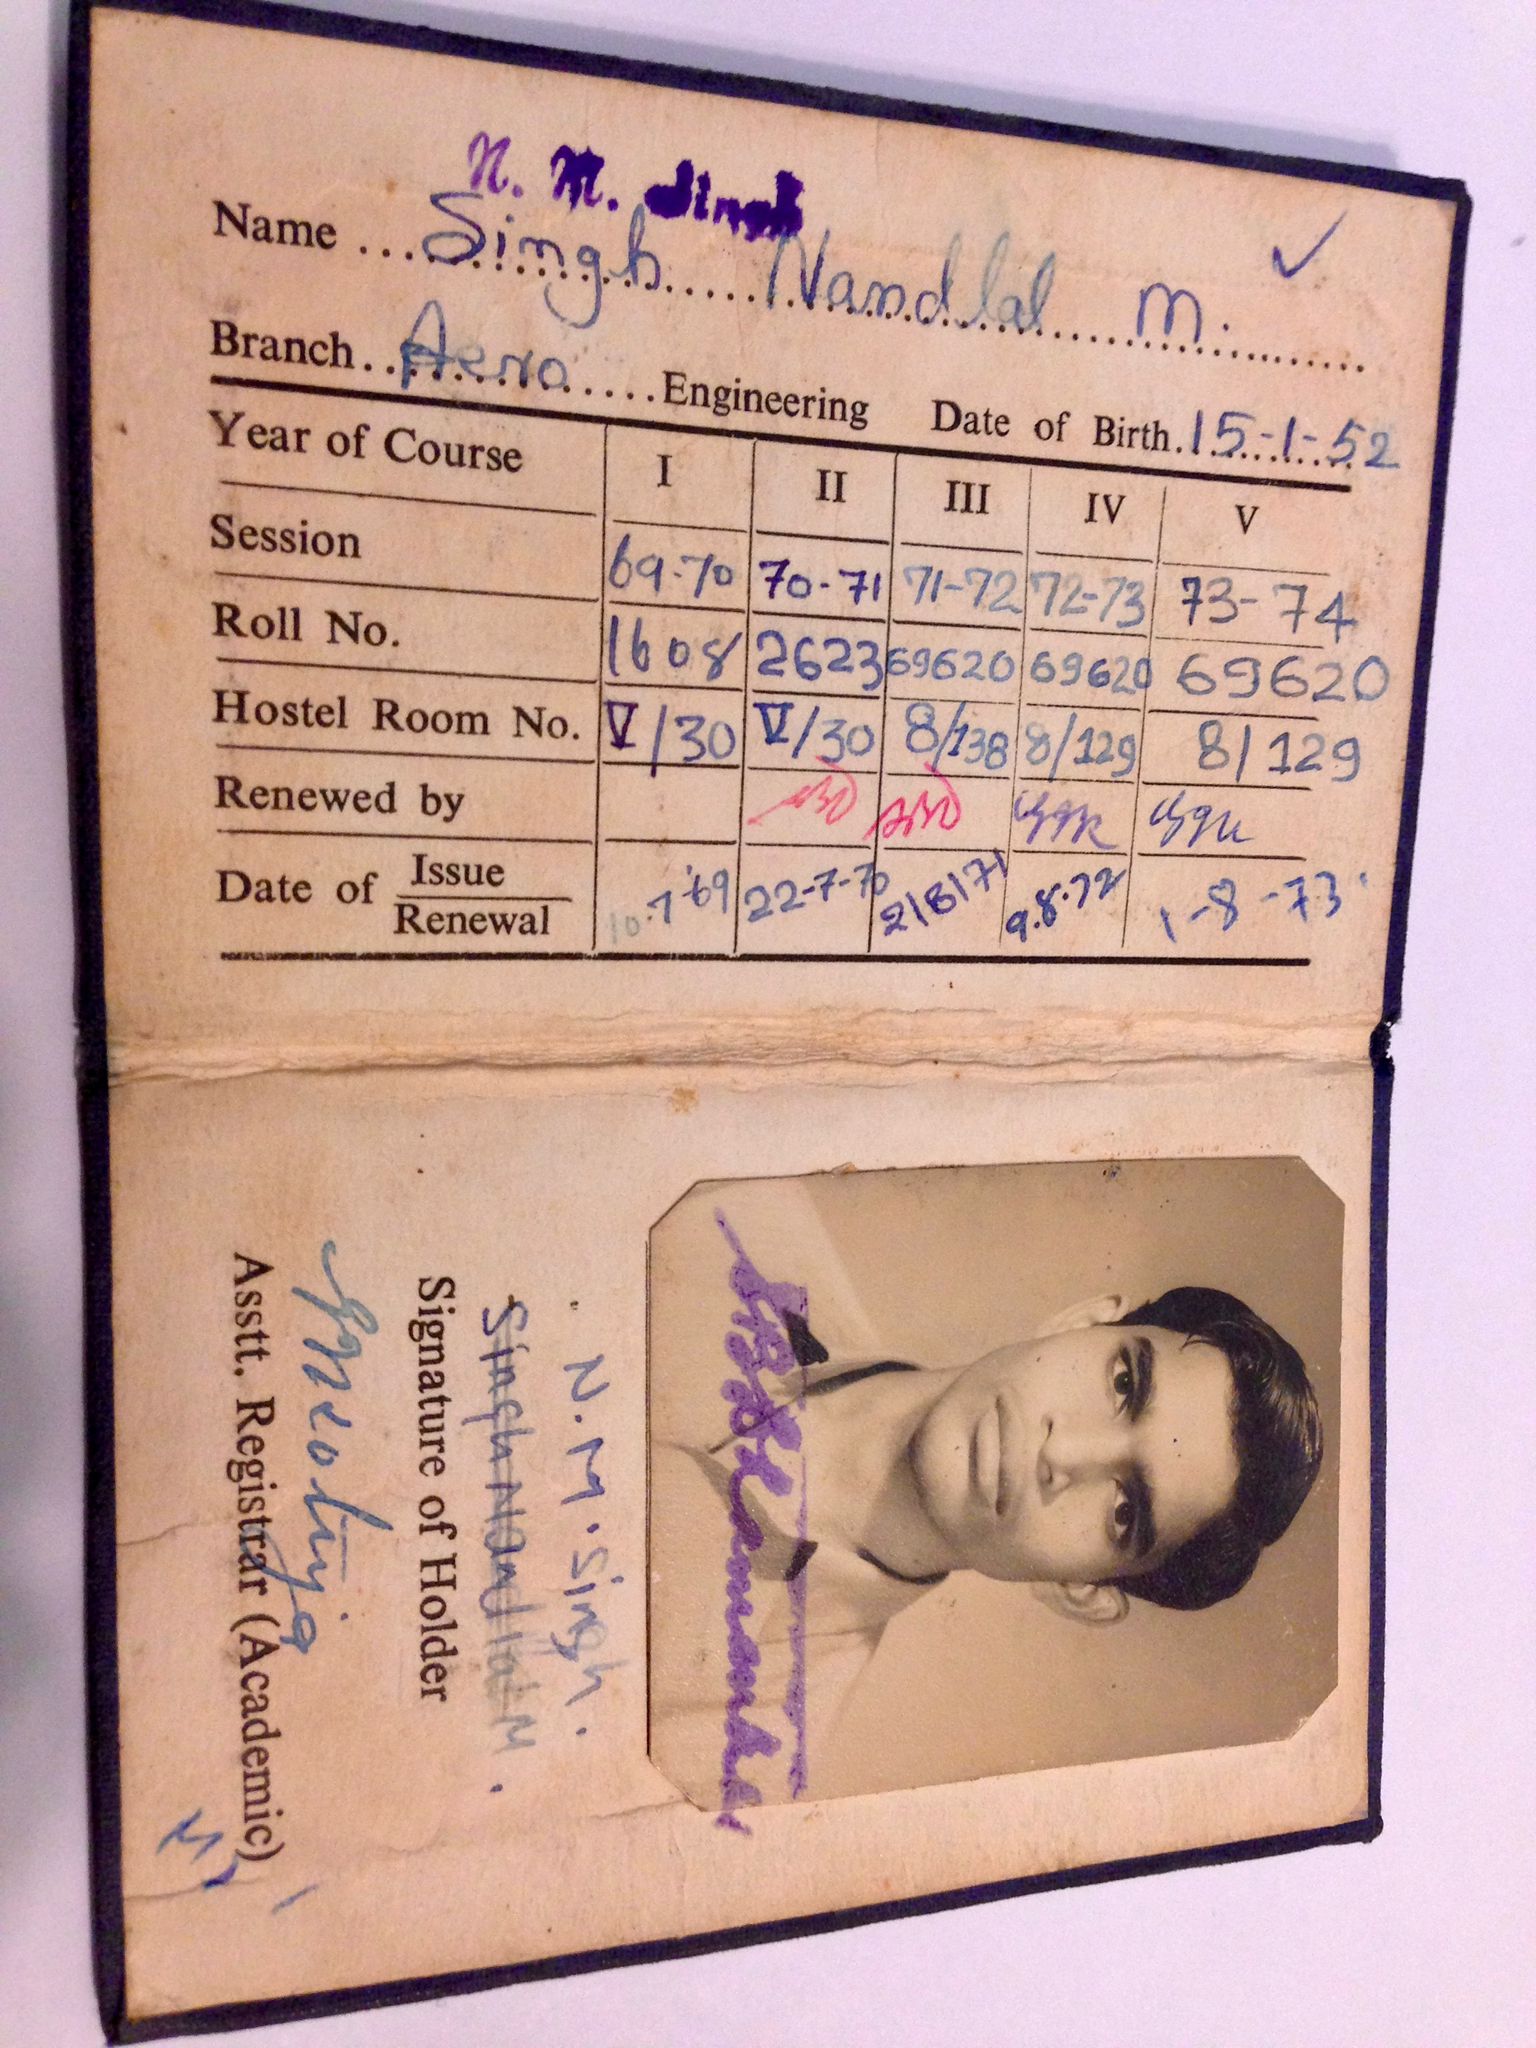 N. M. Singh
Name ... Singh ..... Nandlal ..... M. .....
Branch .. Aero ..... Engineering Date of Birth. 15-1-52
Year of Course I II III IV V
Session 69-70 70-71 71-72 72-73 73-74
Roll No. 1608 2623 69620 69620 69620
Hostel Room No. V/30 V/30 8/138 8/129 8/129
Renewed by
Date of Issue/Renewal 10.7.69 22-7-70 2/8/71 9.8.72 1-8-73
N. M. Singh.
Singh Nandlal M.
Signature of Holder
Asstt. Registrar (Academic)